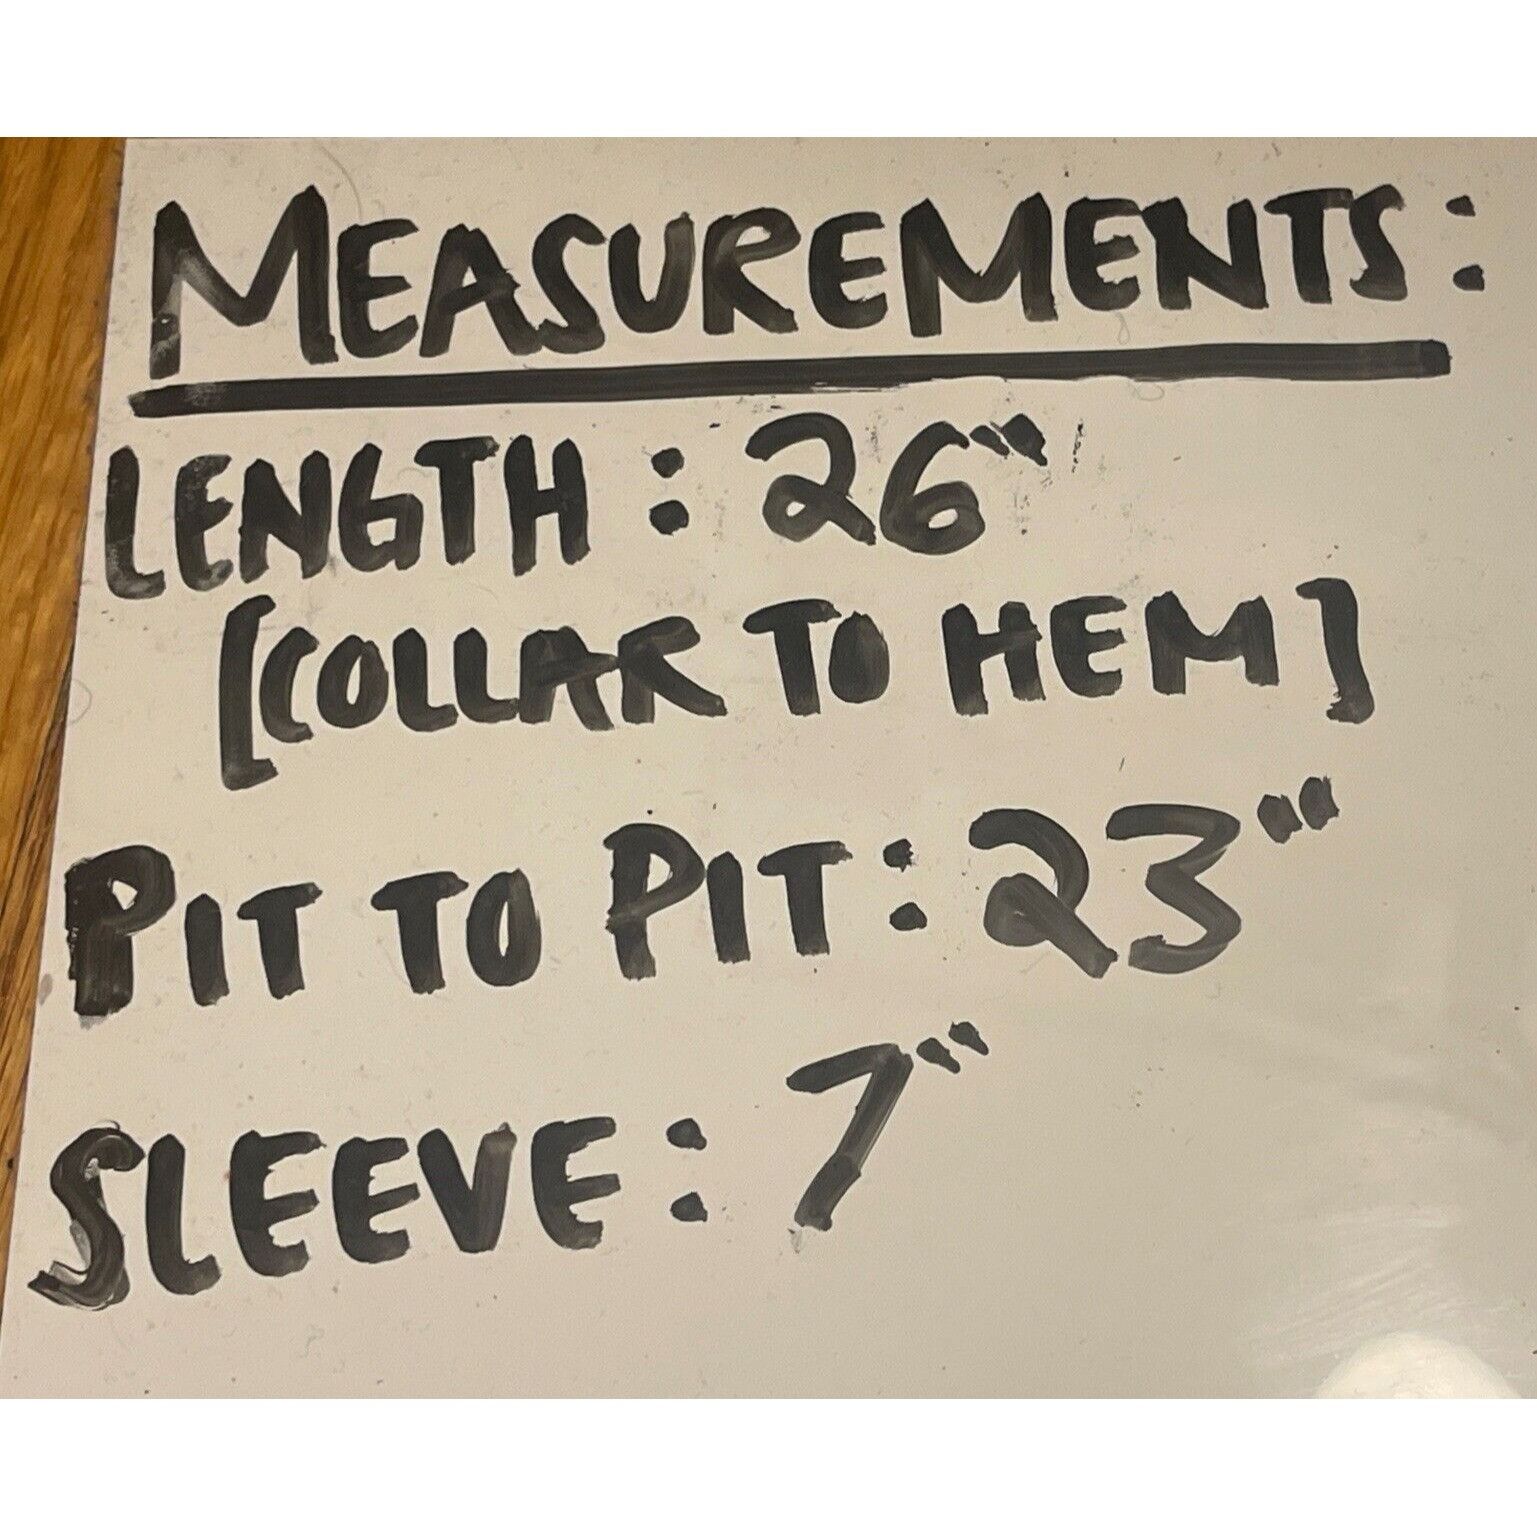 MEASUREMENTS:
LENGTH: 26"
[COLLAR TO HEM]
PIT TO PIT: 23"
SLEEVE: 7"